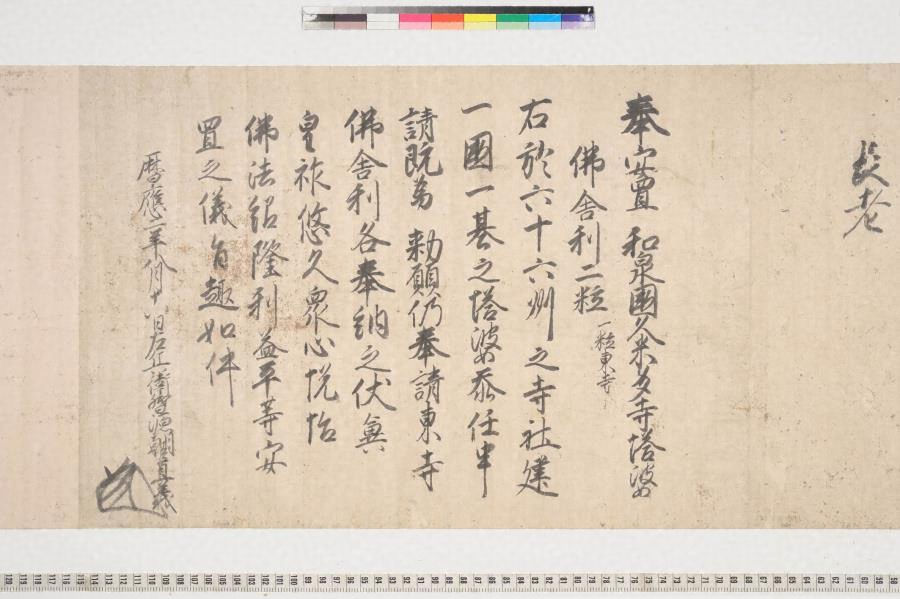 長老
奉安置 和泉國久米多寺塔婆
佛舎利二粒 一粒東寺
右於六十六州之寺社建
一國一基之塔婆忝任申
請既爲 勅願仍奉請東寺
佛舎利各奉納之伏冀
皇祚悠久衆心悦怡
佛法紹隆利益平等安
置之儀旨趣如件
暦應二年八月十八日左兵衛督源朝臣直義